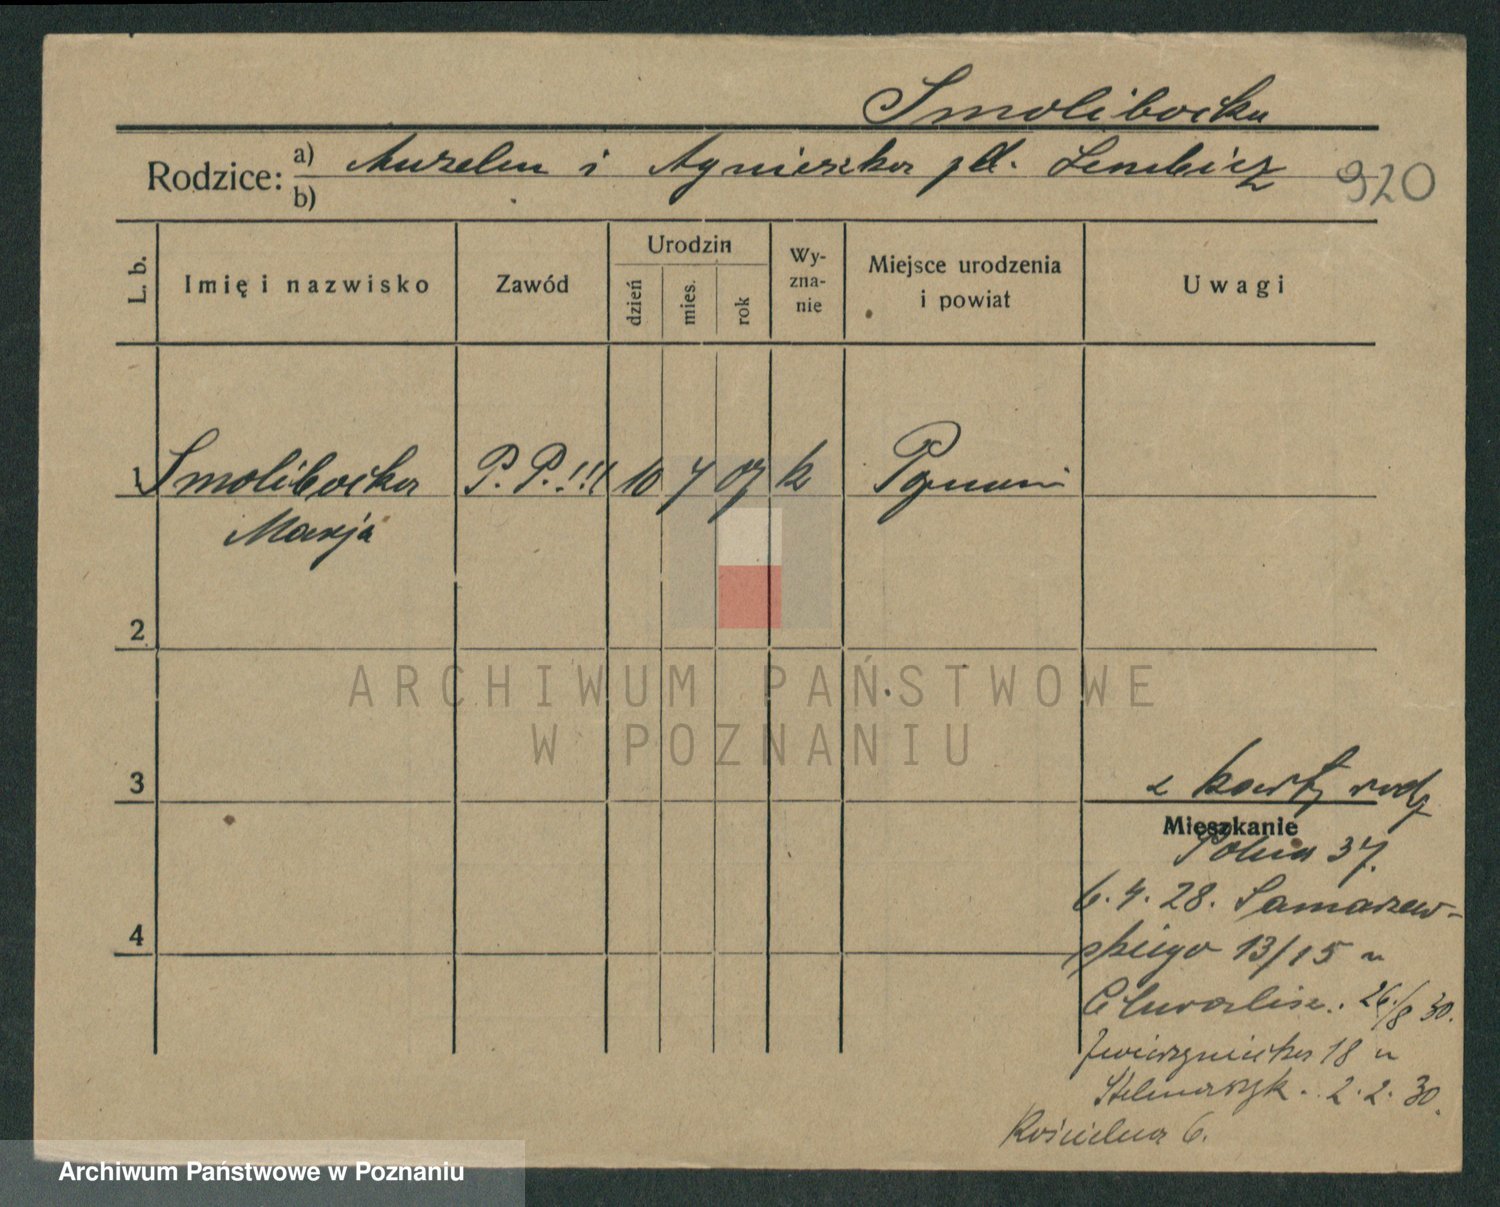 Smolibocka
Rodzice: a) Aurelm i Agnieszka Lembicz 920
b)
L. b. Imię i nazwisko Zawód Urodzin dzień mies. rok Wy-zna-nie Miejsce urodzenia i powiat Uwagi
1 Smolibocka P. P.!!! 10 7 07 k Poznań
Marja
2
ARCHIWUM PAŃSTWOWE
W POZNANIU
3
z karty rodz
Mieszkanie
Polna 37.
4
6. 4. 28. Samarzew-
skiego 13/15 u
26./8 30.
Zwierzyniecka 18 u
2. 2. 30.
Kościelna 6.
Archiwum Państwowe w Poznaniu